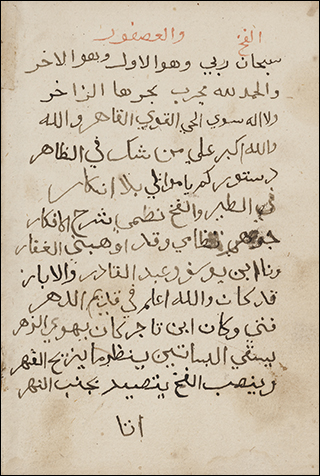 الفخ والعصفور
سبحان ربي وهو الاول وهو الاخر
والحمد لله مجرب بحرها الزاخر
ولا اله سوي الحي القوي القاهر والله
والله اكبر علي من شك في الظاهر
دستوركم يا موالي بلا انكار
في الطير والفخ نظمي بشرح الافكار
نظامي وقد اوهبني الغفار
ونا ابن يوسف وعبد القادر والابار
قد كان والله اعلم في قديم الدهر
فتي وكان ابن تاجر كان يهوي الزهر
يبتغي البساتين ينظر القهر
وينصب الفخ يتصيد بجنب النهر
انا